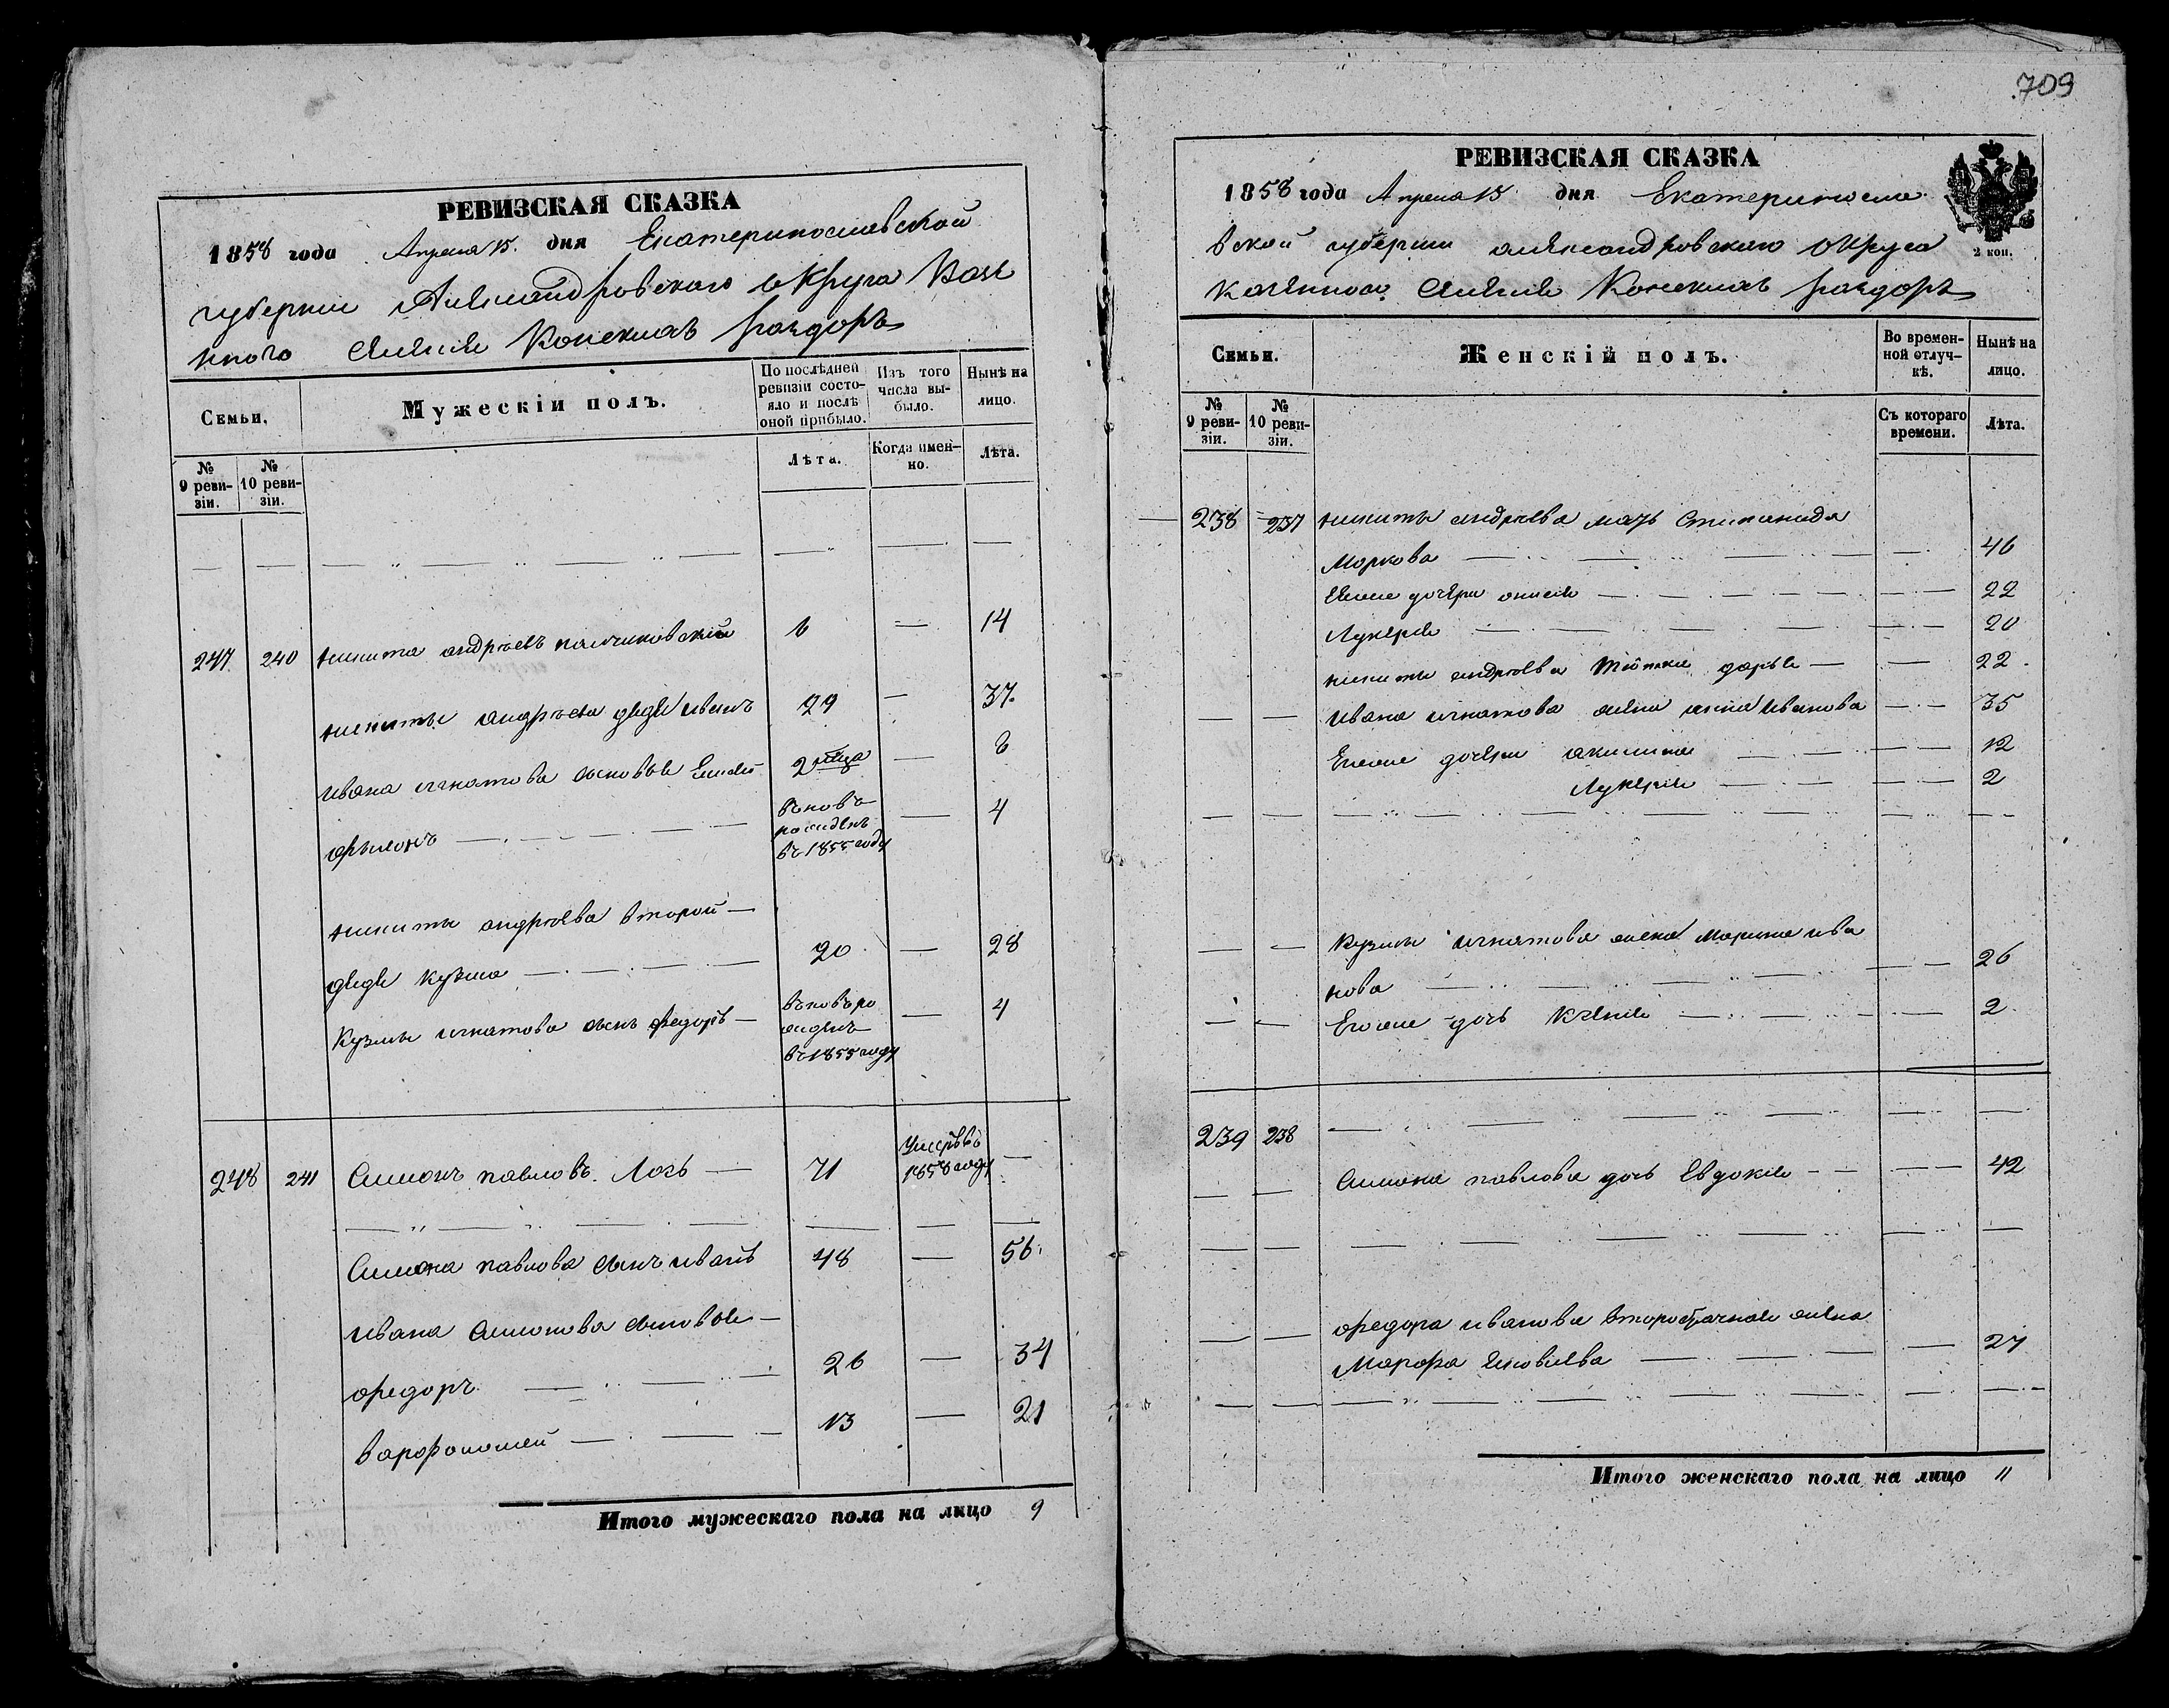 РЕВИЗСКАЯ СКАЗКА
1858 года Апреля 15. дня Екатеринославской
губернии Александровского округа Казе
нного селения Конские раздоры
Семьи.
Мужескій полъ.
По послѣдней ревизіи состояло и послѣ оной прибыло.
Изъ того числа выбыло.
Нынѣ на лицо.
№ 9 ревизіи.
№ 10 ревизіи.
Лѣта.
Когда именно.
Лѣта.
247 240 никита андреевъ 6 — 14
никиты андреева дядя иванъ 29 — 37.
ивана игнатова сыновья 2 — 
— 4
въ 1855 году
никиты андреева второй —
дядя кузьма — 20 — 28
Кузьмы игнатова сынъ федоръ — — 4
въ 1855 году
248 241 Симонъ павловъ Лозь — 71 Умеръ въ 1858 году —
Симона павлова сынъ иванъ 48 — 56.
ивана симонова сыновья —
федоръ 26 — 34
варфоломей — 13 — 21
Итого мужескаго пола на лицо 9
709
РЕВИЗСКАЯ СКАЗКА
1858 года Апреля 15 дня Екатеринославской
вской губернии александровского округа
казенного селения Конские раздоры
2 коп.
Семьи.
Женскій полъ.
Во временной отлучкѣ.
Нынѣ на лицо.
№ 9 ревизіи.
№ 10 ревизіи.
Съ котораго времени.
Лѣта.
238 237 никиты андреева мать Стипанида
Моркова — 46
дочери — 22
Лукерия — 20
никиты андреева тётка дарья — 22.
ивана игнатова жена анна иванова — 35
Егоже дочери акилина — 12
Лукерия — 2
Кузьмы игнатова жена Марина ива
нова — 26
Егоже дочь Ксения — 2
239 238
Симона павлова дочь Евдокия — 42
федора иванова второбрачная жена
Марфа яковлева — 27
Итого женскаго пола на лицо 11